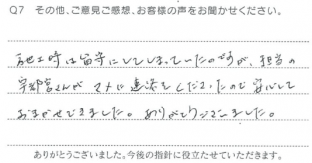 Q7 その他、ご意見ご感想、お客様の声をお聞かせください。
施工時は留守にしてしまっていたのですが、担当の
宇都宮さんがマメに連絡をくださったので安心して
おまかせできました。ありがとうございました。
ありがとうございました。今後の指針に役立たせていただきます。